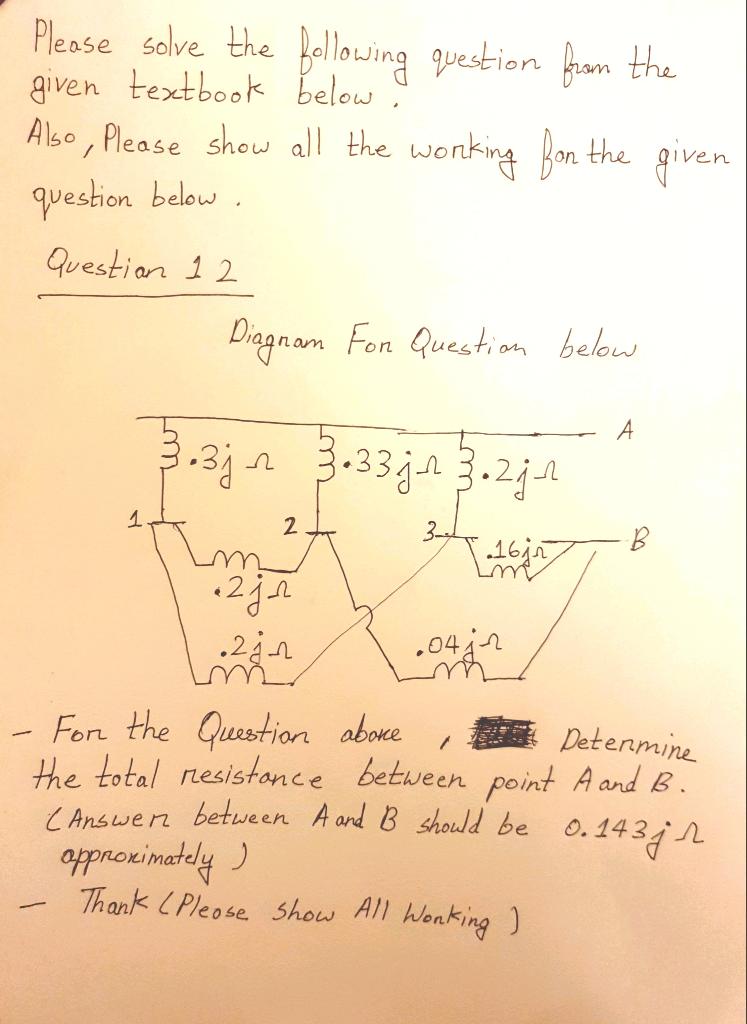 Please solve the following question from the
given textbook below.
Also, Please show all the working for the given
question below.
Question 12
Diagram For Question below
A
.3j Ω .33j Ω .2j Ω
1 2 3 .16j Ω B
.2j Ω
.2j Ω .04j Ω
- For the Question above, Determine
the total resistance between point A and B.
(Answer between A and B should be 0.143j Ω
approximately)
- Thank (Please show All Working)